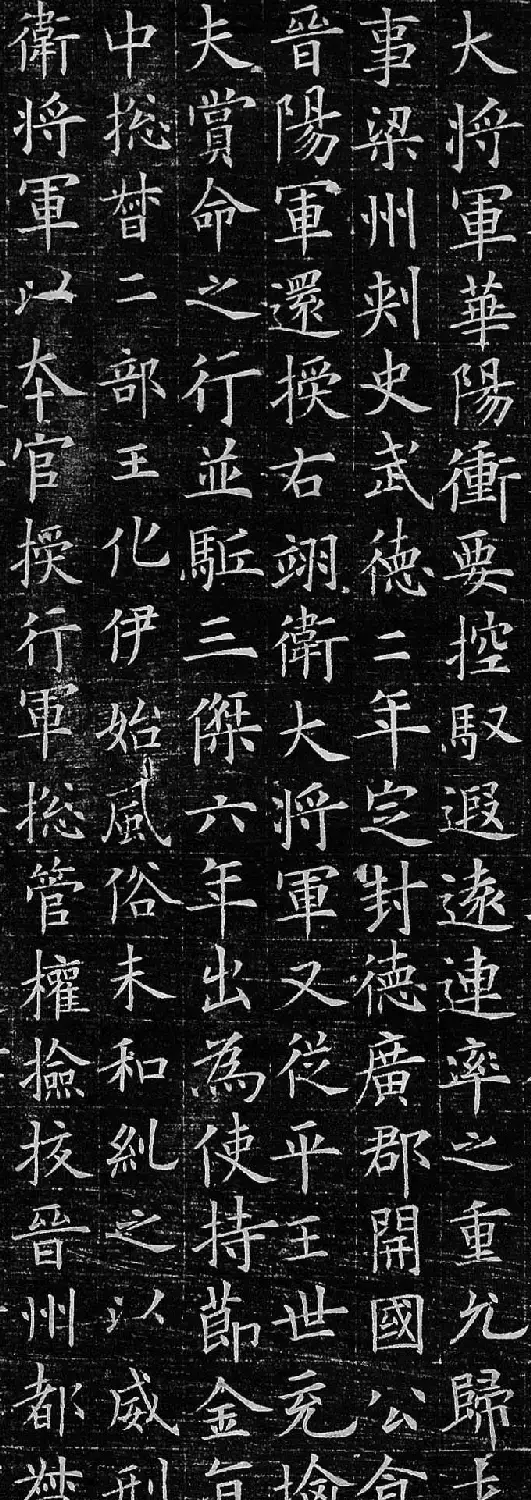 大将軍華陽衝要控馭遐遠連率之重允歸
事梁州刾史武徳二年定封德廣郡開國公食
晉陽軍還授右翊衛大将軍又従平王世充擒
夫賞命之行並駈三傑六年出為使持節金
中揔督二部王化伊始風俗未和糺之以威刑
衛将軍以夲官授行軍揔管權撿挍晉州都督